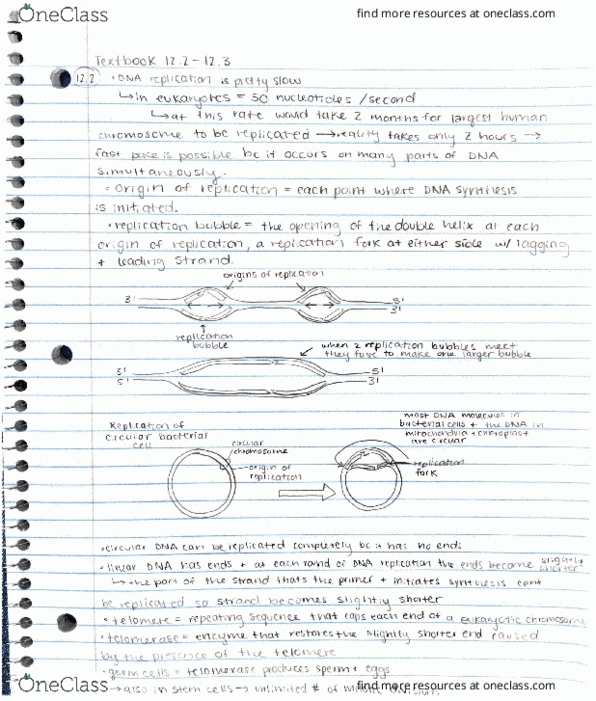 OneClass
find more resources at oneclass.com
Textbook 12.2-12.3
12.2 • DNA replication is pretty slow
↳ in eukaryotes = 50 nucleotides/second
↳ at this rate would take 2 months for largest human
chromosome to be replicated → reality takes only 2 hours →
fast pace is possible bc it occurs on many parts of DNA
simultaneously.
• origin of replication = each point where DNA synthesis
is initiated.
• replication bubble = the opening of the double helix at each
origin of replication, a replication fork at either side w/ lagging
+ leading strand.
origins of replication
3' 5'
3'
replication
bubble
when 2 replication bubbles meet
they fuse to make one larger bubble
3' 5'
5' 3'
Replication of
circular bacterial
cell
most DNA molecules in
bacterial cells + the DNA in
mitochondria + chloroplast
are circular
circular
chromosome
origin of
replication
replication
fork
• circular DNA can be replicated completely bc it has no ends
• linear DNA has ends + at each round of DNA replication the ends become slightly
shorter
↳ the part of the strand thats the primer + initiates synthesis cant
be replicated so strand becomes slightly shorter
• telomere = repeating sequence that caps each end of a eukaryotic chromosome
• telomerase = enzyme that restores the slightly shorter end caused
by the presence of the telomere
• germ cells = telomerase produces sperm + eggs
→ also in stem cells → unlimited # of mitotic divisions
OneClass
find more resources at oneclass.com